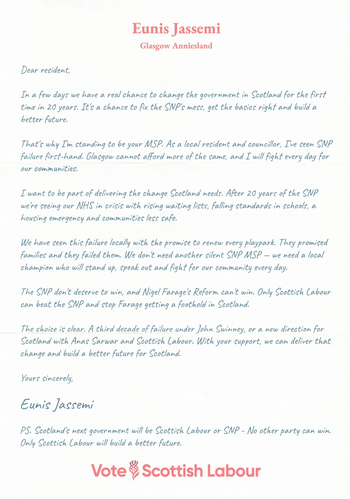 Eunis Jassemi
Glasgow Anniesland
Dear resident,
In a few days we have a real chance to change the government in Scotland for the first
time in 20 years. It's a chance to fix the SNP's mess, get the basics right and build a
better future.
That's why I'm standing to be your MSP. As a local resident and councillor, I've seen SNP
failure first-hand. Glasgow cannot afford more of the same, and I will fight every day for
our communities.
I want to be part of delivering the change Scotland needs. After 20 years of the SNP
we're seeing our NHS in crisis with rising waiting lists, falling standards in schools, a
housing emergency and communities less safe.
We have seen this failure locally with the promise to renew every playpark. They promised
families and they failed them. We don't need another silent SNP MSP – we need a local
champion who will stand up, speak out and fight for our community every day.
The SNP don't deserve to win, and Nigel Farage's Reform can't win. Only Scottish Labour
can beat the SNP and stop Farage getting a foothold in Scotland.
The choice is clear. A third decade of failure under John Swinney, or a new direction for
Scotland with Anas Sarwar and Scottish Labour. With your support, we can deliver that
change and build a better future for Scotland.
Yours sincerely,
Eunis Jassemi
PS. Scotland's next government will be Scottish Labour or SNP - No other party can win.
Only Scottish Labour will build a better future.
Vote Scottish Labour